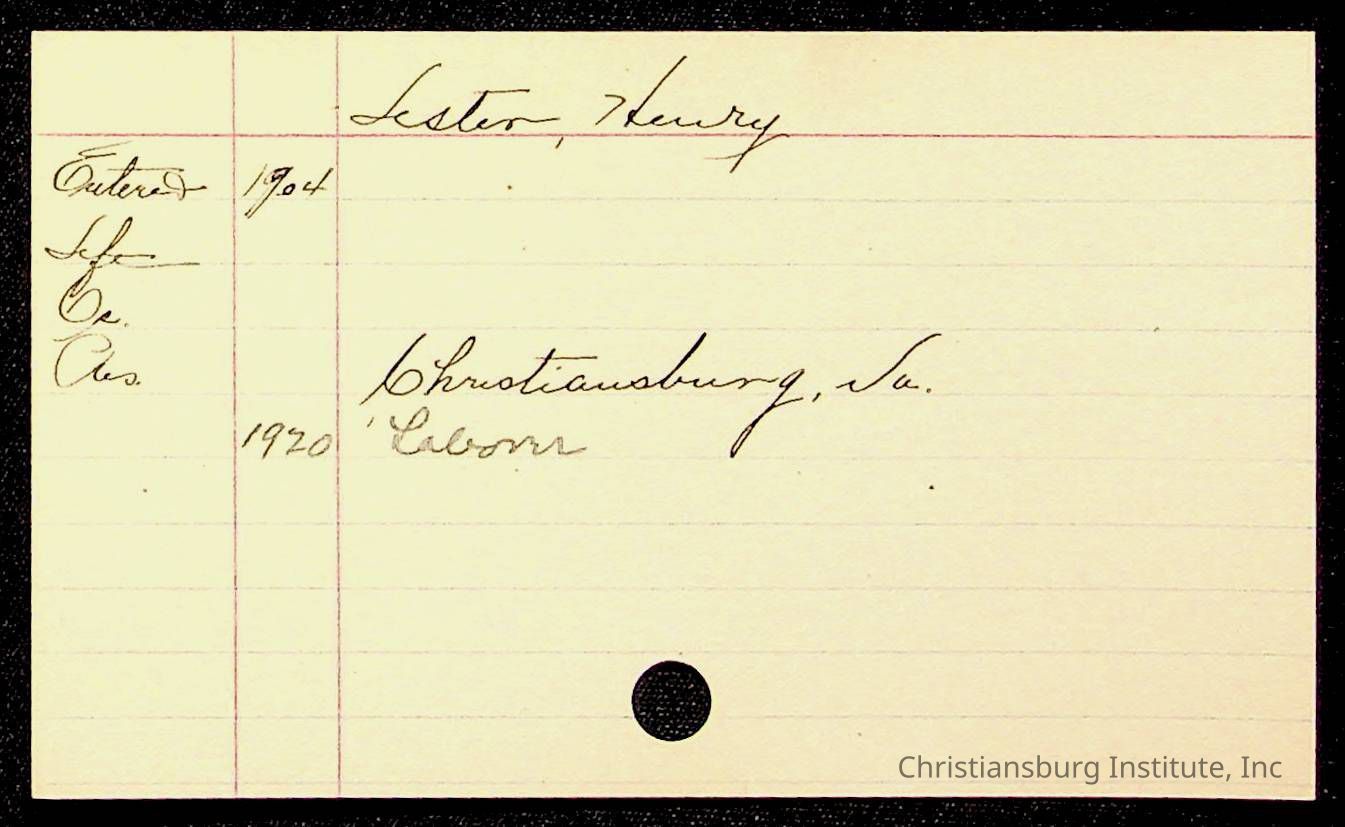 Lester, Henry
Entered 1904
Lefe
Oc.
Res. Christiansburg, Va.
1920 Laborer
Christiansburg Institute, Inc